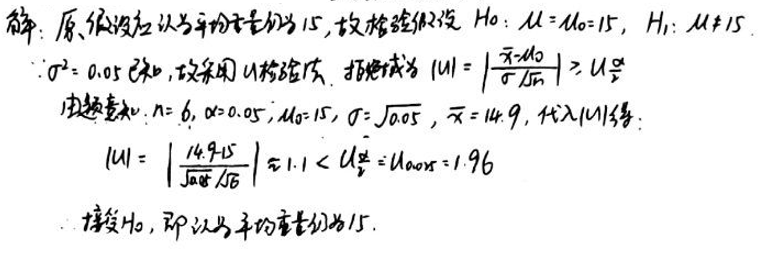 解：原假设应认为平均重量仍为15，故检验假设 H₀：μ=μ₀=15，H₁：μ≠15.
∵σ²=0.05已知，故采用U检验法. 拒绝域为 |U|=|(x̄-μ₀)/(σ/√n)|≥U_{α/2}
由题意知：n=6，α=0.05，μ₀=15，σ=√0.05，x̄=14.9，代入|U|得：
|U|=|(14.9-15)/(√0.05/√6)|≈1.1<U_{α/2}=U_{0.025}=1.96
∴接受H₀，即认为平均重量仍为15.